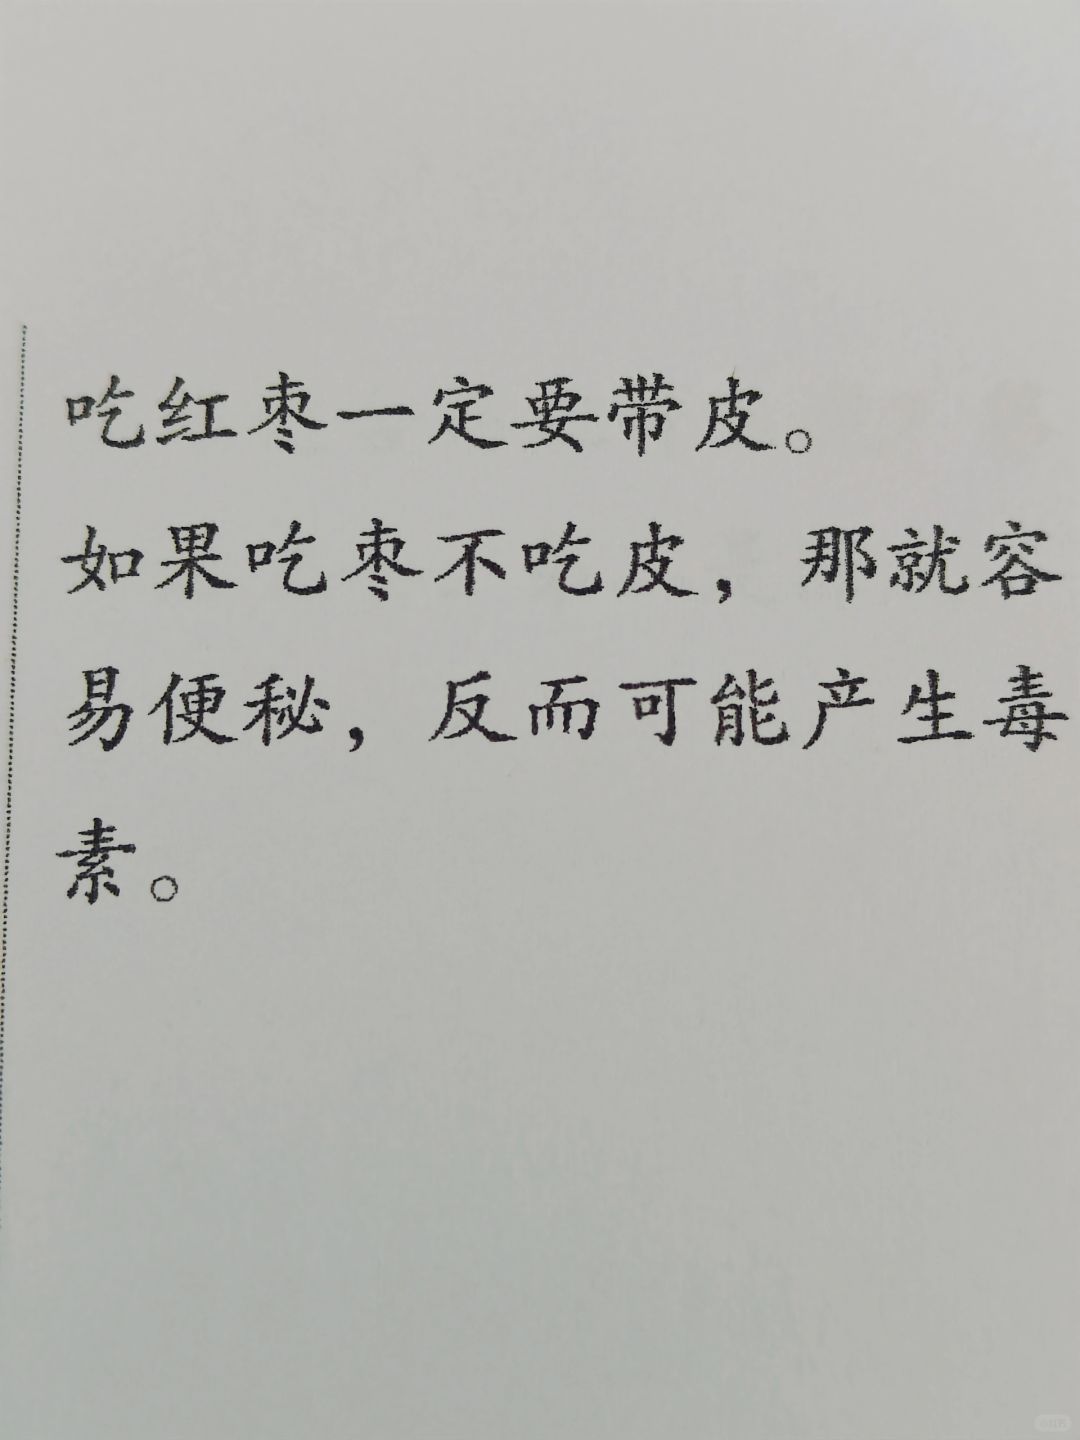 吃红枣一定要带皮。
如果吃枣不吃皮，那就容
易便秘，反而可能产生毒
素。